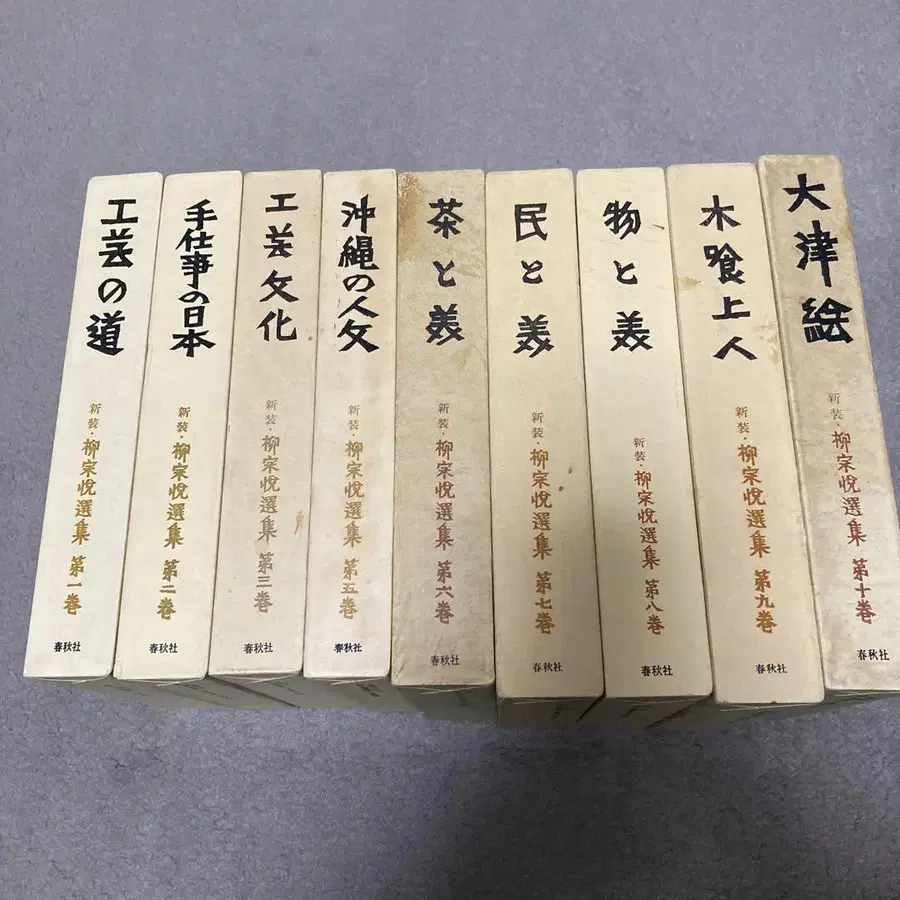 工芸の道
新装・柳宗悦選集 第一巻
春秋社
手仕事の日本
新装・柳宗悦選集 第二巻
春秋社
工芸文化
新装・柳宗悦選集 第三巻
春秋社
沖縄の人文
新装・柳宗悦選集 第五巻
春秋社
茶と美
新装・柳宗悦選集 第六巻
春秋社
民と美
新装・柳宗悦選集 第七巻
春秋社
物と美
新装・柳宗悦選集 第八巻
春秋社
木喰上人
新装・柳宗悦選集 第九巻
春秋社
大津絵
新装・柳宗悦選集 第十巻
春秋社